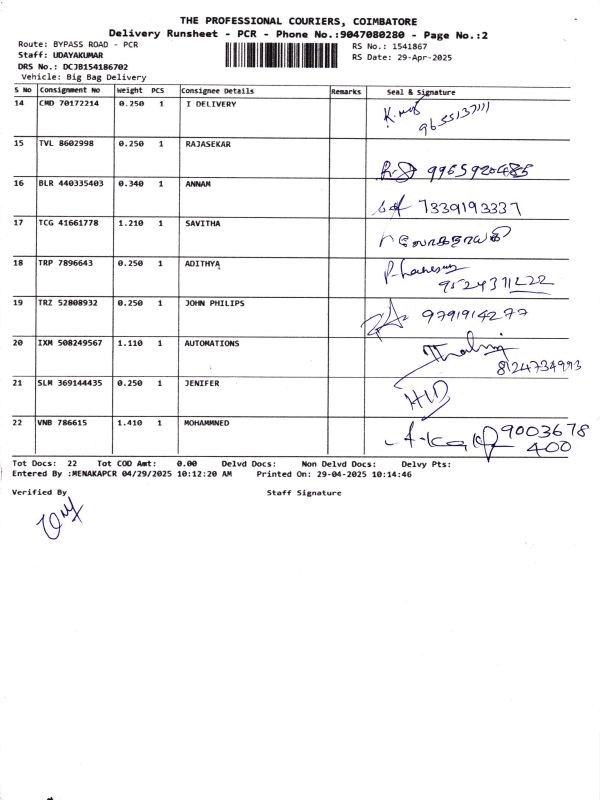 THE PROFESSIONAL COURIERS, COIMBATORE
Delivery Runsheet - PCR - Phone No.:9047080280 - Page No.:2
Route: BYPASS ROAD - PCR RS No.: 1541867
Staff: UDAYAKUMAR RS Date: 29-Apr-2025
DRS No.: DCJB154186702
Vehicle: Big Bag Delivery
S No Consignment No Weight PCS Consignee Details Remarks Seal & Signature
14 CMD 70172214 0.250 1 I DELIVERY
9655137111
15 TVL 8602998 0.250 1 RAJASEKAR
9965920485
16 BLR 440335403 0.340 1 ANNAM
7339193337
17 TCG 41661778 1.210 1 SAVITHA
18 TRP 7896643 0.250 1 ADITHYA
9524371222
19 TRZ 52808932 0.250 1 JOHN PHILIPS
9791914277
20 IXM 508249567 1.110 1 AUTOMATIONS
8124734993
21 SLM 369144435 0.250 1 JENIFER
22 VNB 786615 1.410 1 MOHAMMNED
9003678
400
Tot Docs: 22 Tot COD Amt: 0.00 Delvd Docs: Non Delvd Docs: Delvy Pts:
Entered By :MENAKAPCR 04/29/2025 10:12:20 AM Printed On: 29-04-2025 10:14:46
Verified By Staff Signature